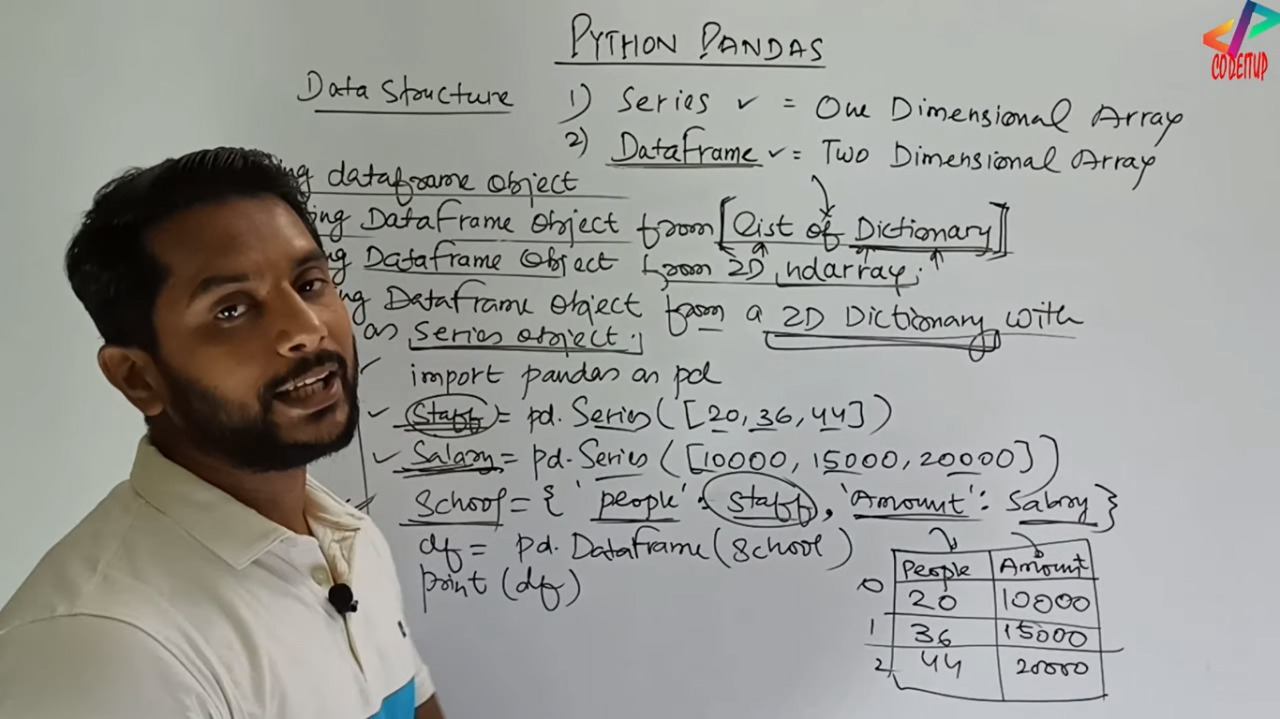 PYTHON PANDAS
CODEITUP
Data Structure 1) Series ✓ = One Dimensional Array
2) DataFrame ✓ = Two Dimensional Array
ing dataframe object
ing DataFrame Object from [List of Dictionary]
ng Dataframe Object from 2D ndarray.
ng Dataframe Object from a 2D Dictionary with
as Series object.
import pandas as pd
✓ Staff = pd.Series([20, 36, 44])
✓ Salary = pd.Series([10000, 15000, 20000])
School = { 'people': Staff, 'Amount': Salary }
df = pd.DataFrame(School)
print(df)
People Amount
0 20 10000
1 36 15000
2 44 20000